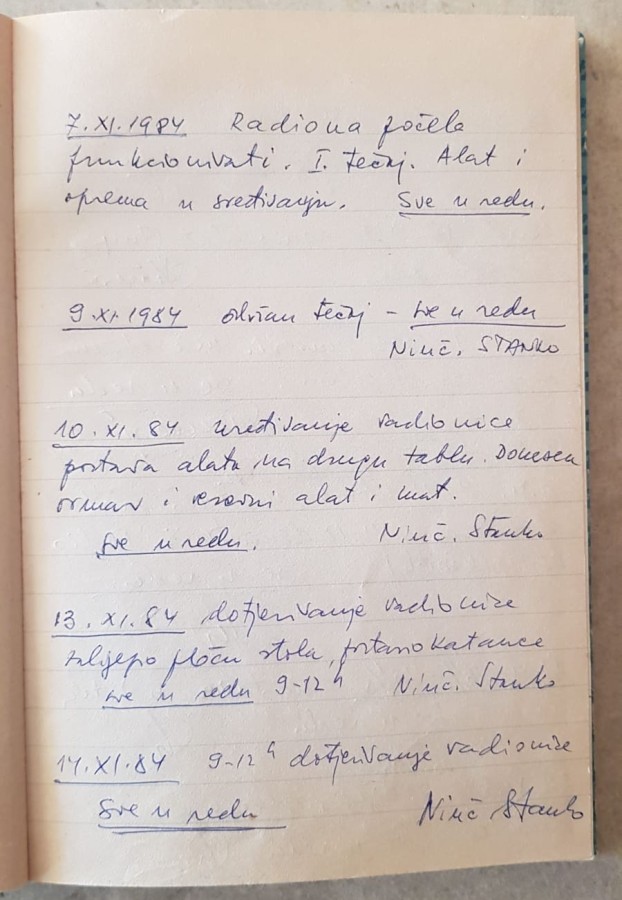 7.XI.1984 Radiona počela
funkcionirati. I. tečaj. Alat i
oprema u sređivanju. Sve u redu.
9.XI.1984 održan tečaj - sve u redu
STANKO
10.XI.84 uređivanje radionice
alata na drugu tablu. Donesen
ormar i rezervni alat i mat.
Sve u redu. Stanko
13.XI.84 dotjerivanje radionice
zalijepio ploču stola, katance
sve u redu 9-12 h Stanko
14.XI.84 9-12 h dotjerivanje radionice
Sve u redu Stanko